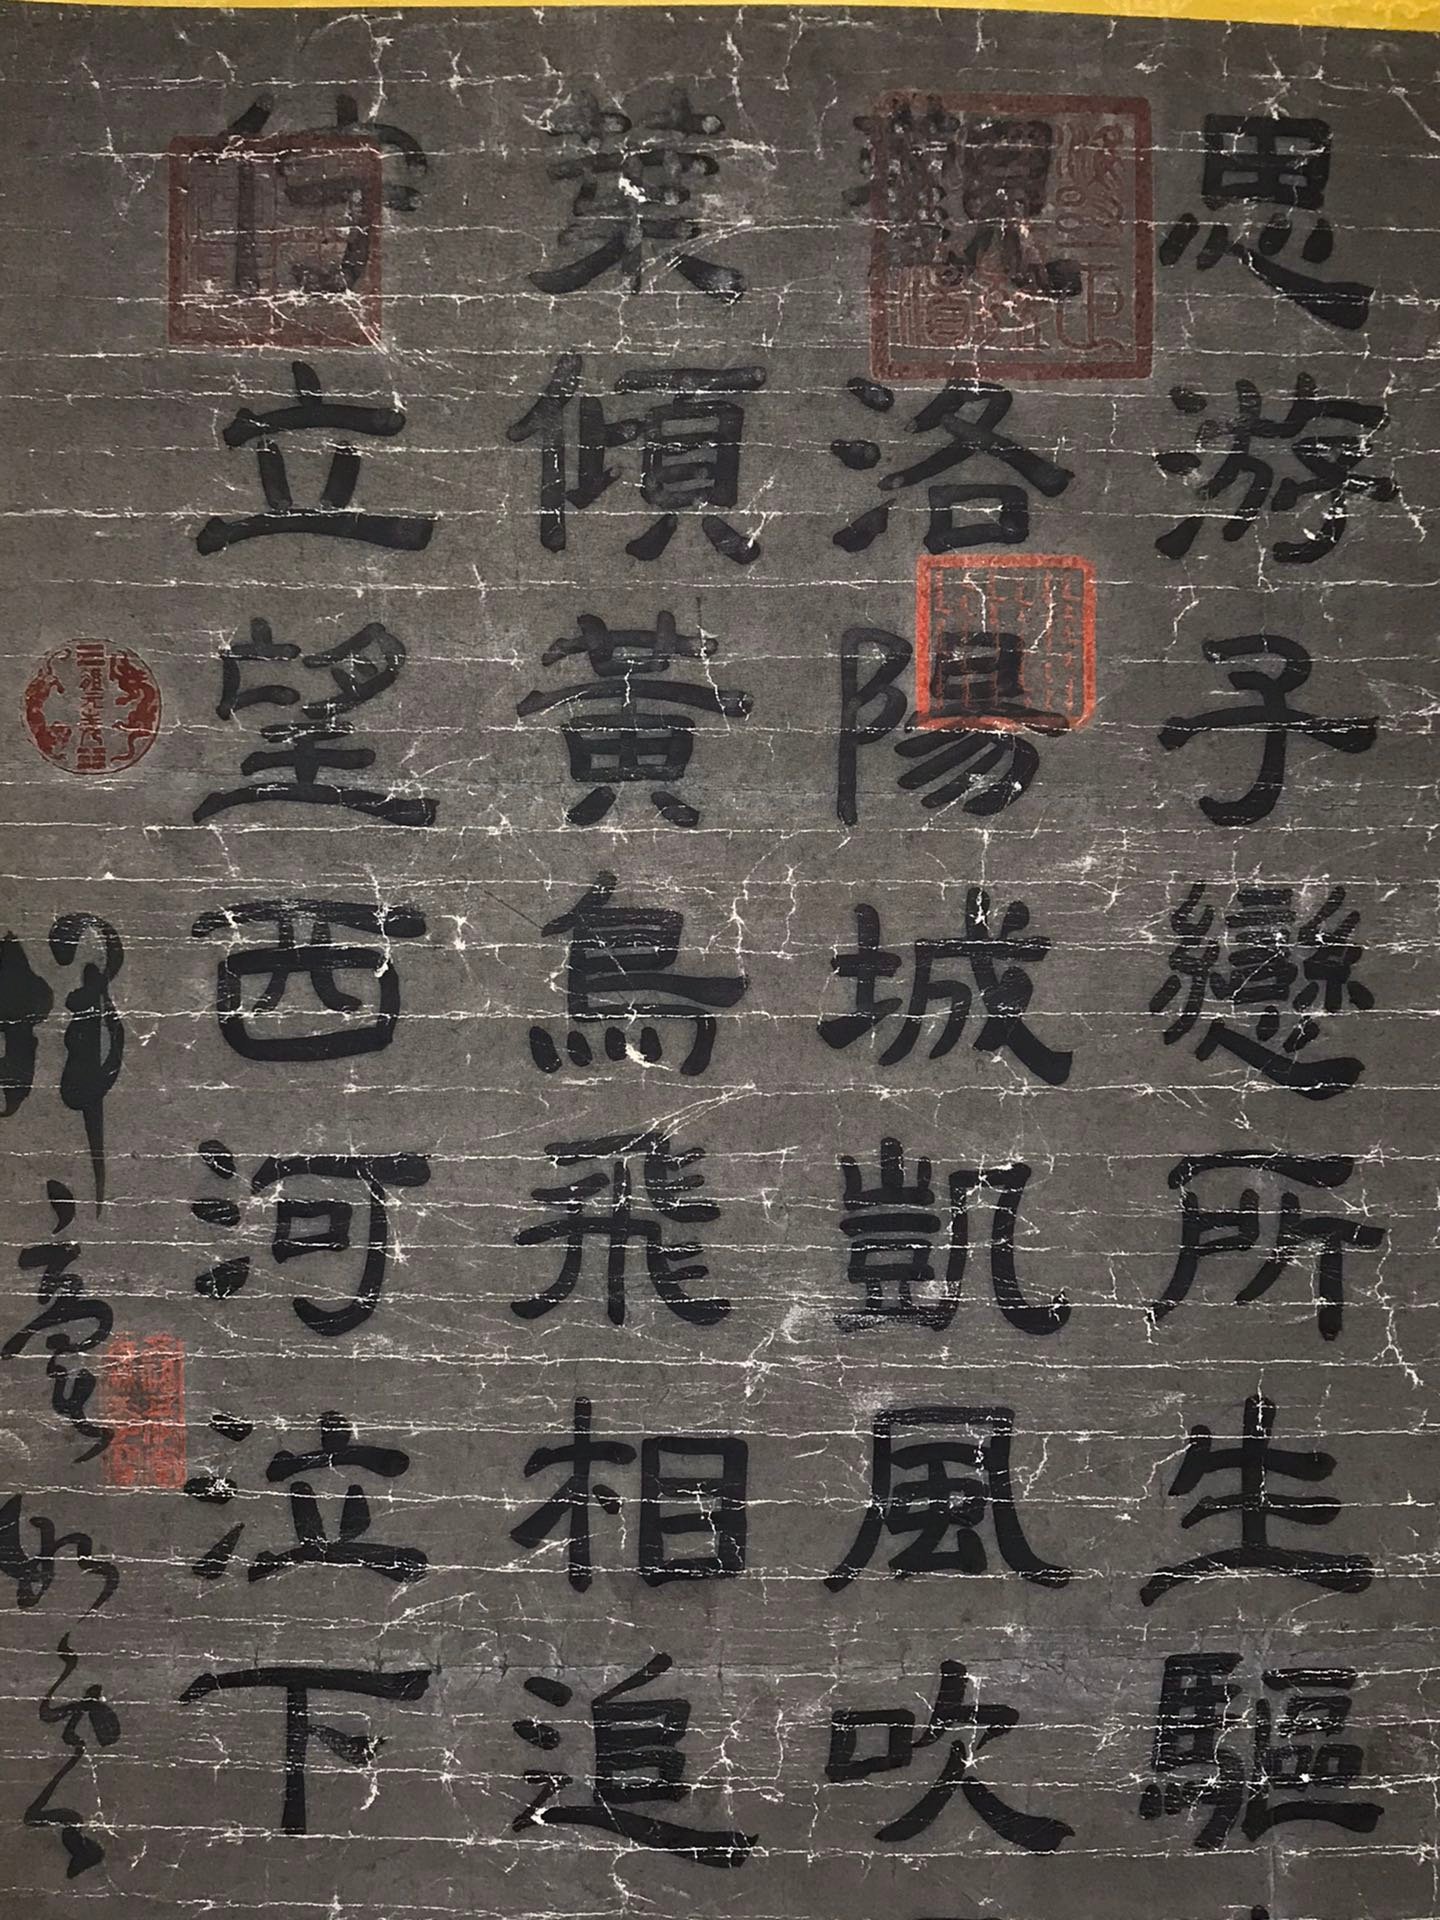 思游子戀所生驅
觀洛陽城凱風吹
葉傾黃鳥飛相追
佇立望西河泣下